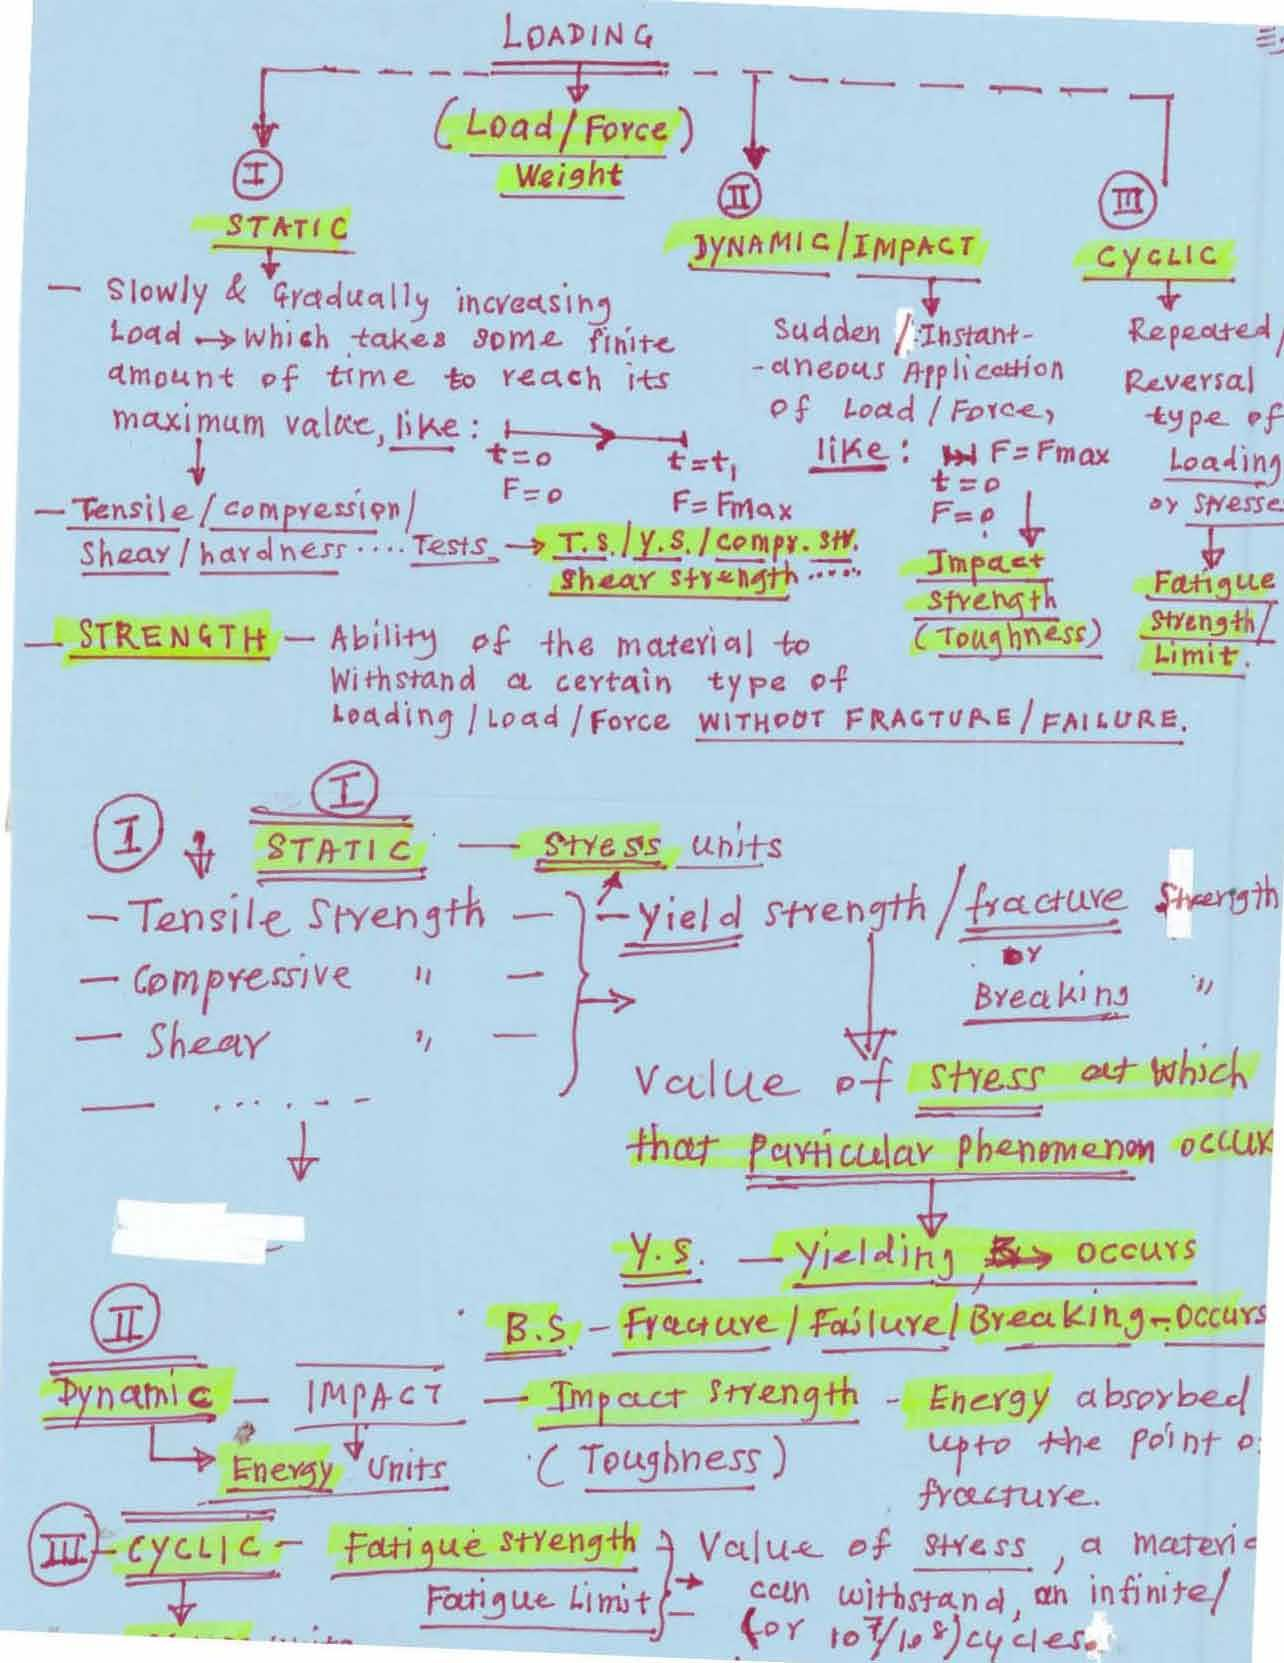 LOADING
(Load/Force)
Weight
I
STATIC
— Slowly & Gradually increasing
Load → which takes some finite
amount of time to reach its
maximum value, like:
t=0 t=t₁
F=0 F=Fmax
— Tensile/compression/
Shear/hardness .... Tests → T.S./Y.S./compr. str.
shear strength .....
II
DYNAMIC/IMPACT
Sudden / Instant-
-aneous Application
of Load/Force,
like: F=Fmax
t=0
F=0
Impact
strength
(Toughness)
III
CYCLIC
Repeated/
Reversal
type of
Loading
or stresse
Fatigue
Strength/
Limit.
— STRENGTH — Ability of the material to
Withstand a certain type of
Loading/Load/Force WITHOUT FRACTURE/FAILURE.
I
I
STATIC — Stress units
— Tensile Strength —
— Compressive " —
— Shear " —
— ......
→ — Yield strength/fracture Strength
or
Breaking "
Value of stress at which
that particular phenomenon occur
Y.S. — Yielding → occurs
B.S — Fracture/Failure/Breaking — occurs
II
Dynamic — IMPACT — Impact Strength - Energy absorbed
Energy Units (Toughness) upto the point o
fracture.
III — CYCLIC — Fatigue strength } Value of stress, a materi
Fatigue Limit } → can withstand, an infinite/
(or 10⁷/10⁸) cycles.